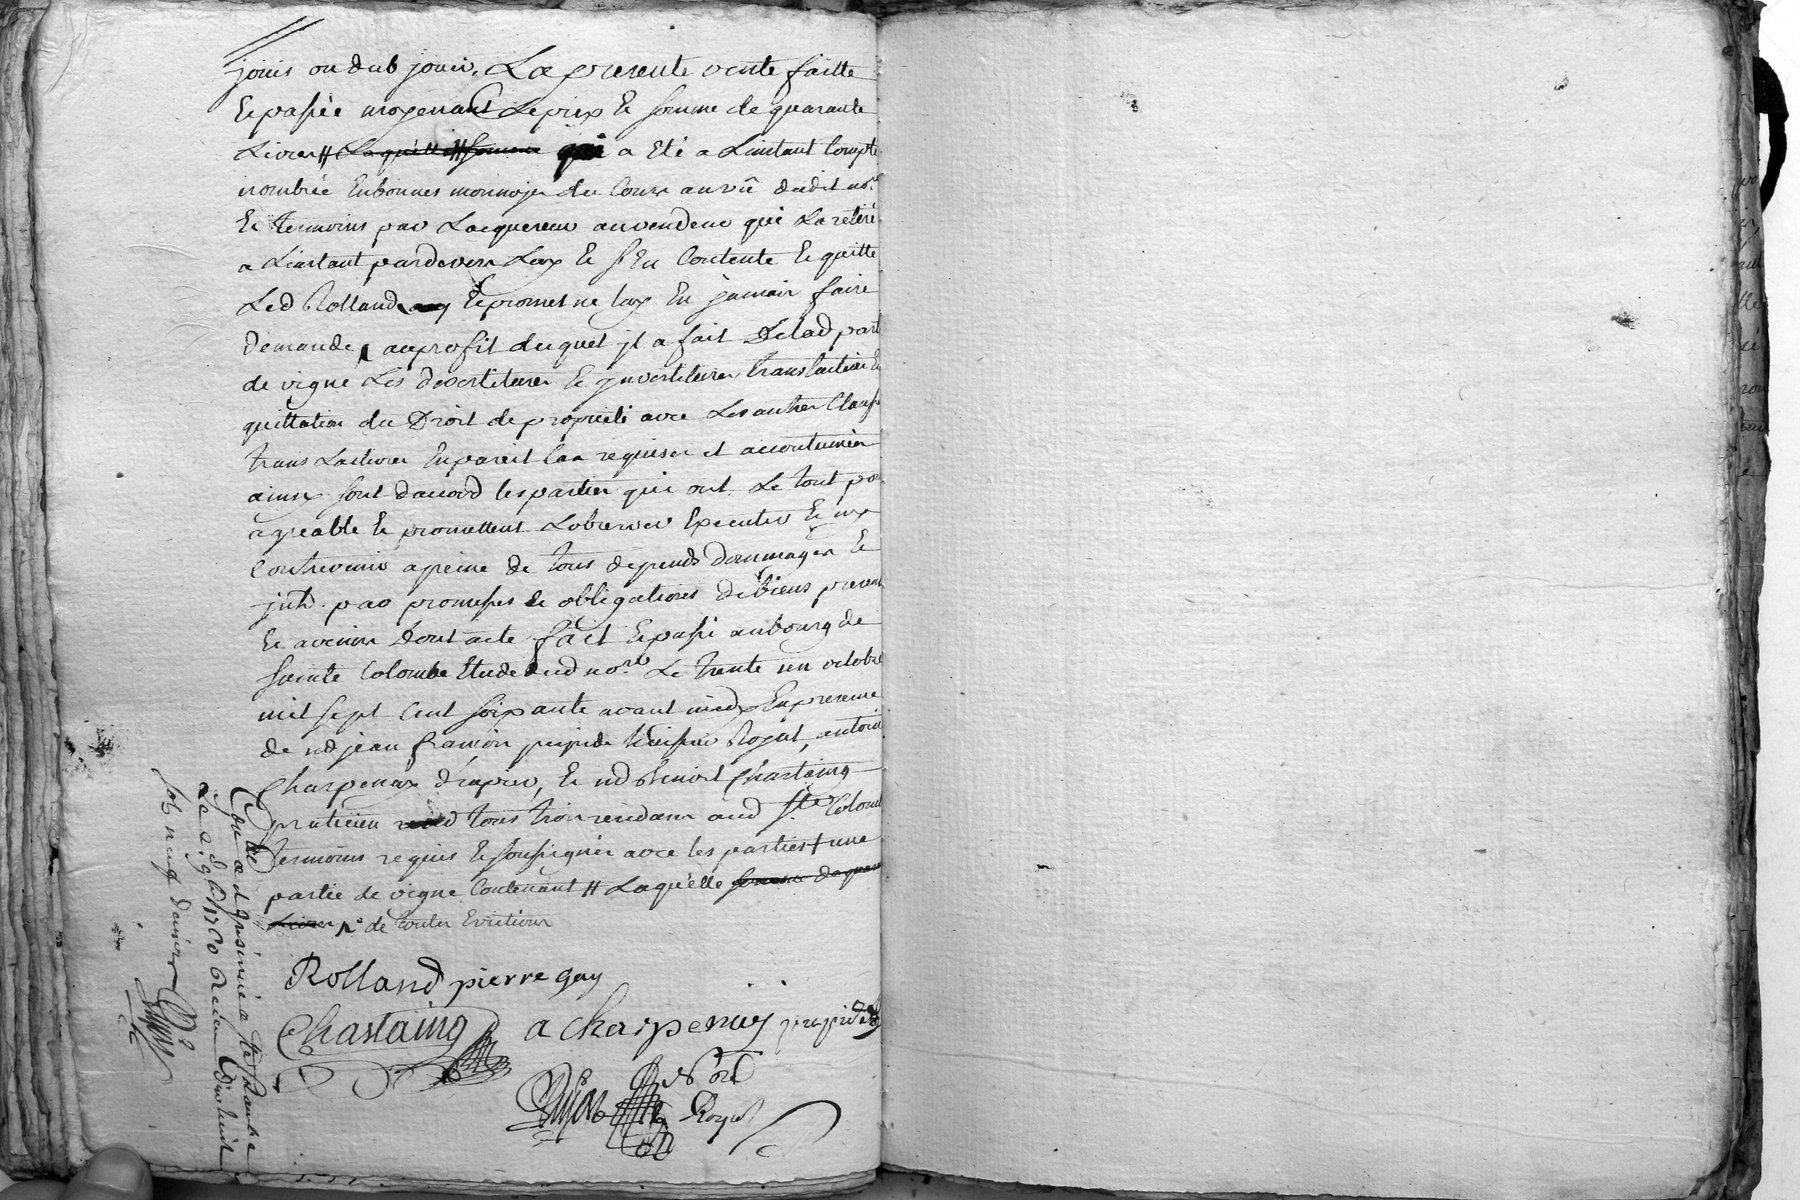 jouis ou dub jouir. La presente vente faitte
Et passée moyenant Le prix Et somme de quarante
Livres # Laquelle somme qui a Eté a Linstant Compté
nombrée En bonnes monnoyes du Cours au vû dudit nore
Et temoins par Lacquereur au vendeur qui La retiré
a Linstant pardevers Luy Et s'En Contente Et quitte
Led Rolland Et promet ne luy En jamais faire
demande, au profit duquel jl a fait De lad part
de vigne Les devestitures Et jnvestitures translactives Et
quittation du Droit de proprieté avec Les autres Clauses
translactives En pareil Cas requises et accoutumées
ainsy sont daccord les parties qui ont Le tout pour
agreable Et promettent Lobserver Executer Et ny
Contrevenir a peine de tous depends Dommages Et
jnts. par promesses Et obligations de biens presents
Et avenir Dont acte fait Et passé au bourg de
sainte Colombe Etude dud nore Le trente un octobre
mil sept Cent soixante avant midy En presence
de md jean francois huissier Royal, antoine
Charpenay drapier, Et md Benoit Chastaing
praticien tous trois residans aud Ste Colombe
temoins requis Et soussignés avec les parties + une
partie de vigne Contenant # Laquelle somme de quarante
Livres de toutes Evictions
Rolland pierre gay
Chastaing a charpenay
Nore
Royal
Con.lé et a Ste Colombe
Le 2 9bre 1760 Recu dix huit
sols neuf deniers